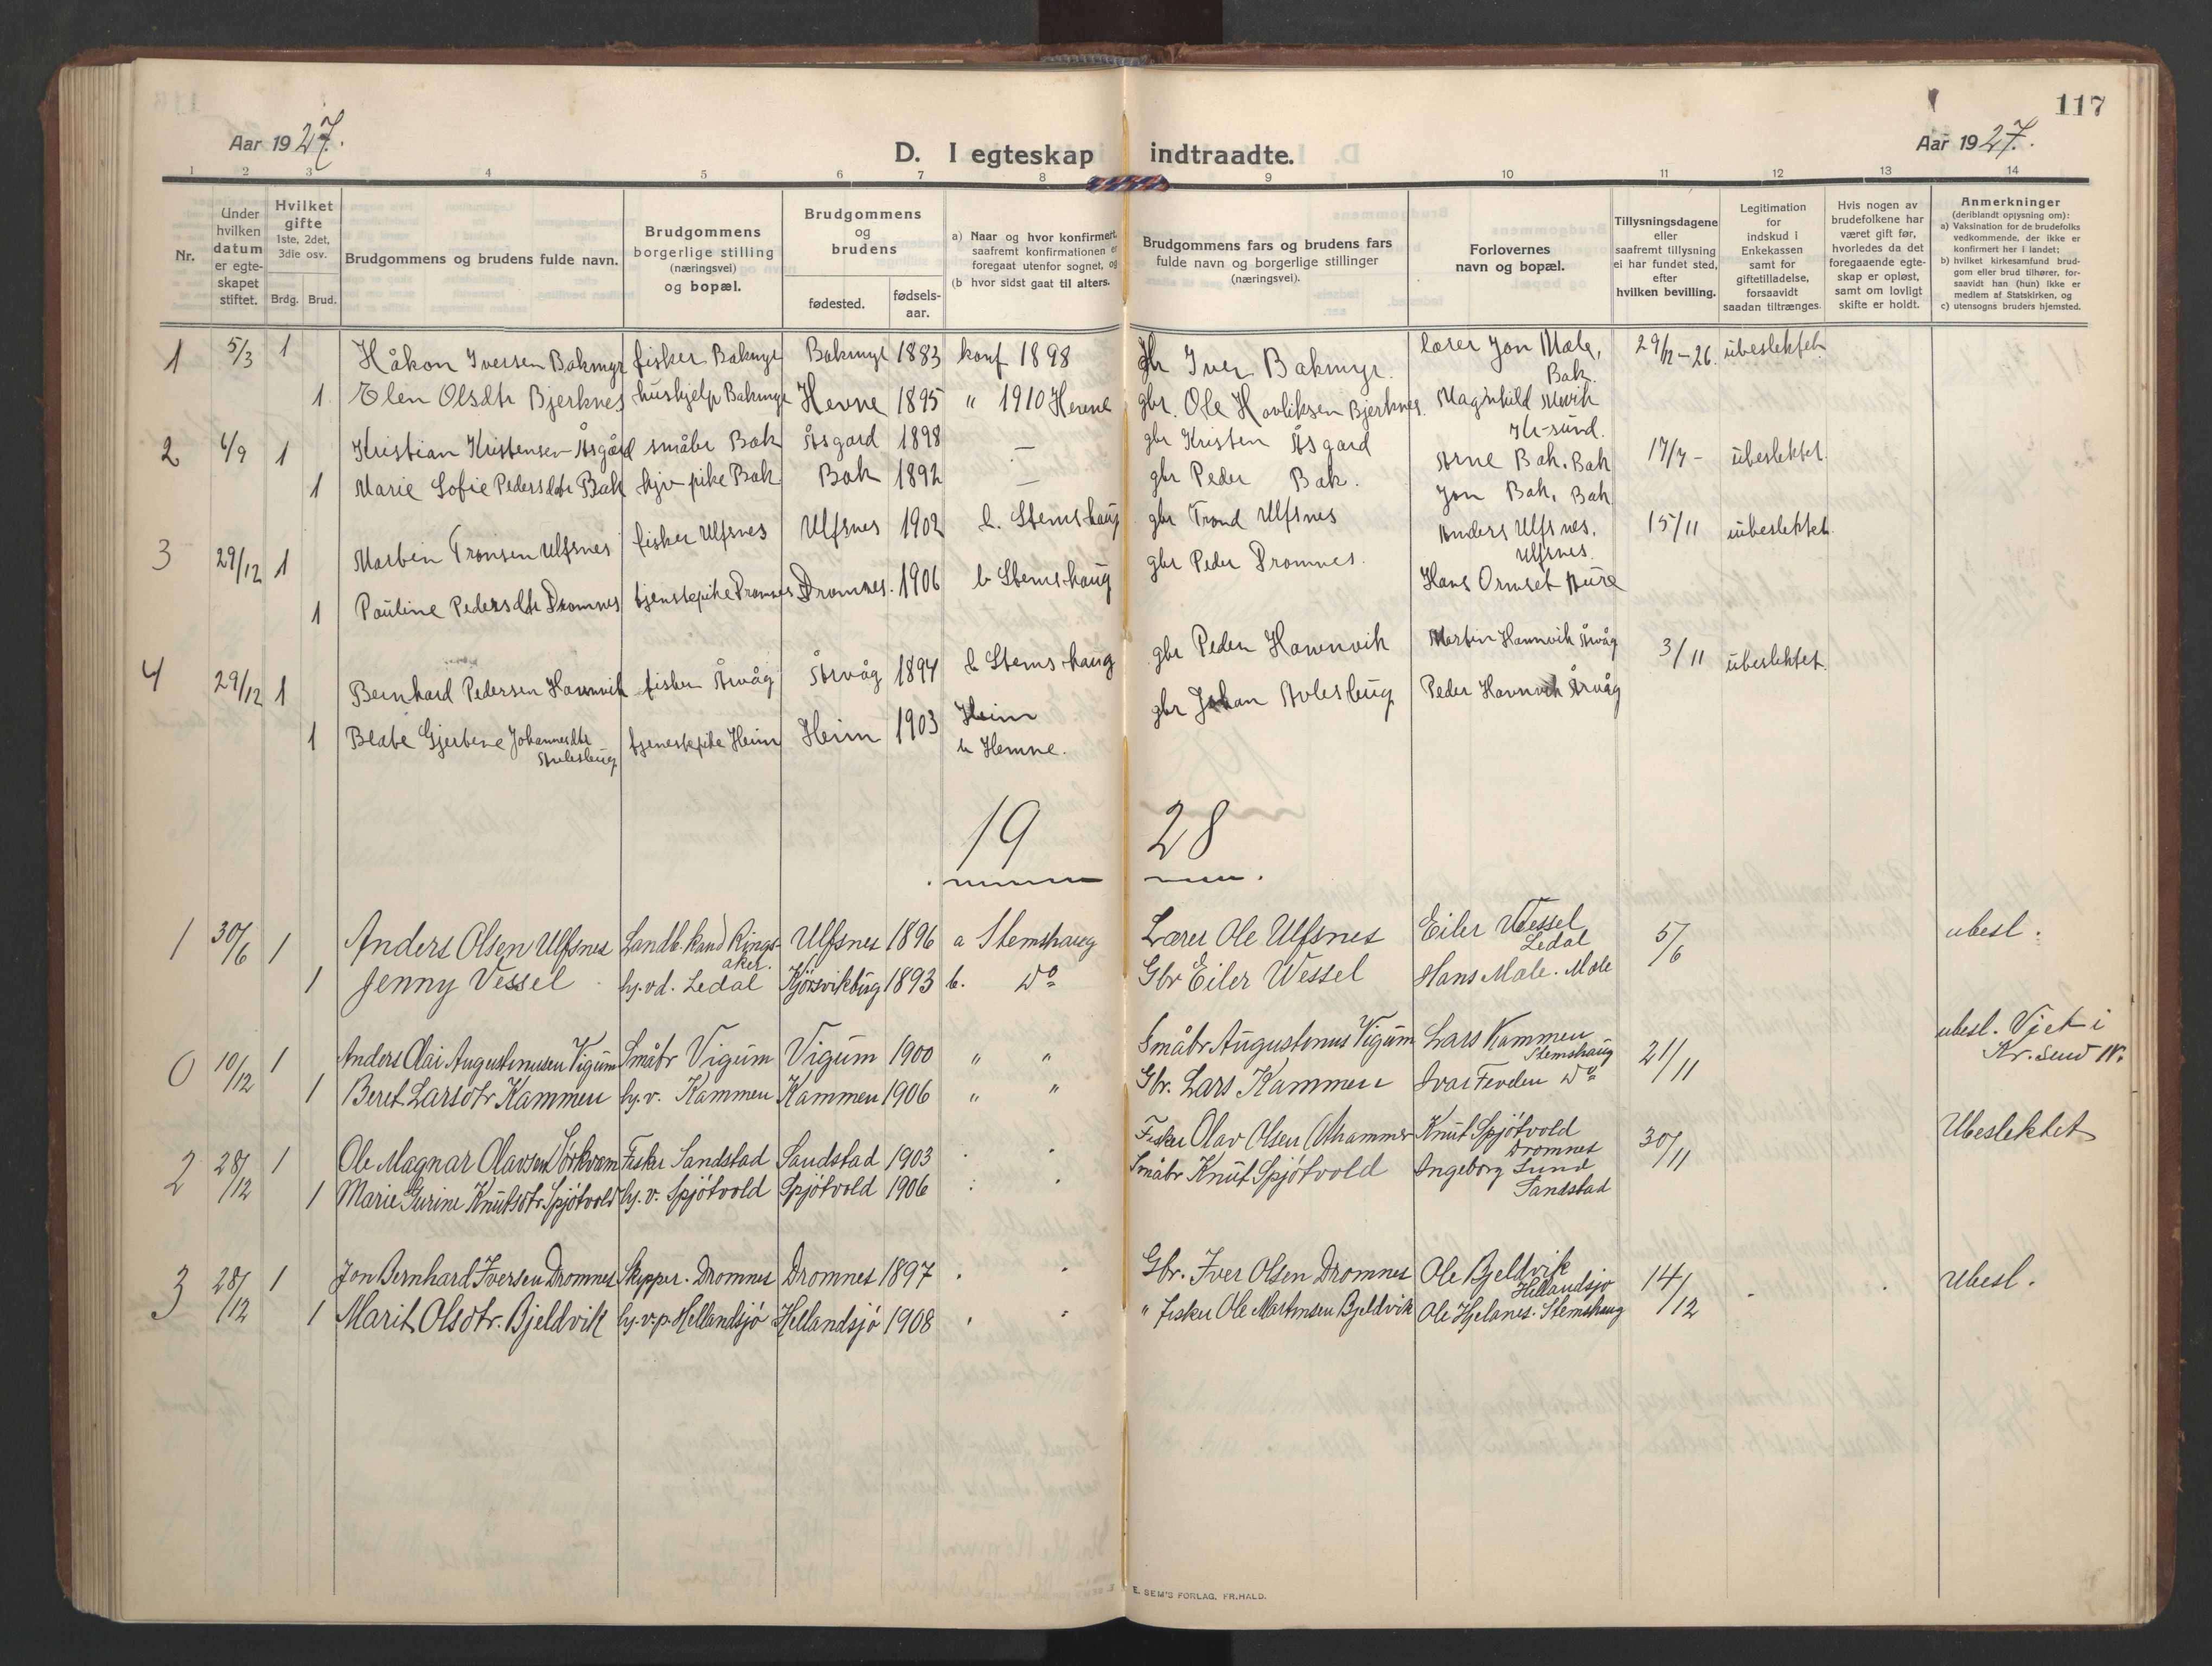 117
Aar 1927.
D. I egteskap indtraadte.
Aar 1927.
1 2 3 4 5 6 7 8 9 10 11 12 13 14
Nr.
Under hvilken datum er egteskapet stiftet.
Hvilket gifte 1ste, 2det, 3die osv.
Brdg. Brud.
Brudgommens og brudens fulde navn.
Brudgommens borgerlige stilling (næringsvei) og bopæl.
Brudgommens og brudens
fødested.
fødsels-aar.
a) Naar og hvor konfirmert, saafremt konfirmationen er foregaat utenfor sognet, og
(b hvor sidst gaat til alters.
Brudgommens fars og brudens fars fulde navn og borgerlige stillinger (næringsvei).
Forlovernes navn og bopæl.
Tillysningsdagene eller saafremt tillysning ei har fundet sted, efter hvilken bevilling.
Legitimation for indskud i Enkekassen samt for giftetilladelse, forsaavidt saadan tiltrænges.
Hvis nogen av brudefolkene har været gift før, hvorledes da det foregaaende egteskap er opløst, samt om lovligt skifte er holdt.
Anmerkninger
(deriblandt opjysning om):
a) Vaksination for de brudefolks vedkommende, der ikke er konfirmert her i landet;
b) hvilket kirkesamfund brudgom eller brud tilhører, forsaavidt han (hun) ikke er medlem af Statskirken, og
c) utensogns bruders hjemsted.
1 5/3 1 Håkon Iversen Bakmyr fisker Bakmyr Bakmyr 1883 konf 1898 gbr Iver Bakmyr. lærer Jon Male, Bak. 29/12-26. ubeslektet
1 Elen Olsdtr Bjerknes hushjelp Bakmyr Hevne 1895 " 1910 Hevne gbr. Ole Havliksen Bjerknes. Magnhild Kr-sund.
2 6/9 1 Kristian Kristensen Åsgård småbr Bak Åsgard 1898 — gbr Kristen Åsgard Arne Bak. Bak 17/7 - ubeslektet
1 Marie Sofie Pedersdtr Bak hjv pike Bak Bak 1892 — gbr Peder Bak. Jon Bak, Bak
3 29/12 1 Martin Tronsen Ulfsnes fisker Ulfsnes Ulfsnes 1902 b. Stemshaug gbr Trond Ulfsnes Anders Ulfsnes, Ulfsnes. 15/11 ubeslektet
1 Pauline Pedersdtr Dromnes tjenestepike Dromnes Dromnes. 1906 b Stemshaug gbr Peder Dromnes. Hans Ormset Aure
4 29/12 1 Bernhard Pedersen Havnvik fisker Årvåg Årvåg 1894 b Stemshaug gbr Peder Havnvik Martin Havnvik Årvåg 3/11 ubeslektet
1 Beate Gjertine Johannesdtr Aulesbug tjenestepike Heim Heim 1903 Heim b Hemne. gbr Johan Aulesbug Peder Havnvik Årvåg
19 28
1 30/6 1 Anders Olsen Ulfsnes Landb. kand Ringsaker. Ulfsnes 1896 a Stemshaug Lærer Ole Ulfsnes Eiler Wessel Ledal 5/6 ubesl.
1 Jenny Vessel hj.vd. Ledal Kjørsvikbug 1893 b. Do Gbr Eiler Wessel Hans Male. Male
0 10/12 1 Anders Olai Augustinusen Vigum Småbr Vigum Vigum 1900 " " Småbr Augustinus Vigum Lars Kammen Stemshaug 21/11 ubesl. Viet i Kr. sund N.
1 Beret Larsdtr Kammen hj.v. Kammen Kammen 1906 " " Gbr. Lars Kammen Ivar Tevden Do
2 28/12 1 Ole Magnar Olavsen Sørkvam Fisker Sandstad Sandstad 1903 Fisker Olav Olsen Knut Spjøtvold Dromnes 30/11 Ubeslektet
1 Marie Gurine Knutsdtr. Spjøtvold hj.v. Spjøtvold Spjøtvold 1906 Småbr Knut Spjøtvold Ingeborg Lund Sandstad
3 28/12 1 Jon Bernhard Iversen Dromnes Skipper. Dromnes Dromnes 1897 Gbr. Iver Olsen Dromnes Ole Bjeldvik Hellandsjø 14/12 Ubesl.
1 Marit Olsdtr. Bjeldvik hj.v.p. Hellandsjø Hellandsjø 1908 " Fisker Ole Martinsen Bjeldvik Ole Hjelanes. Stemshaug
E. SEM'S FORLAG, FR.HALD.